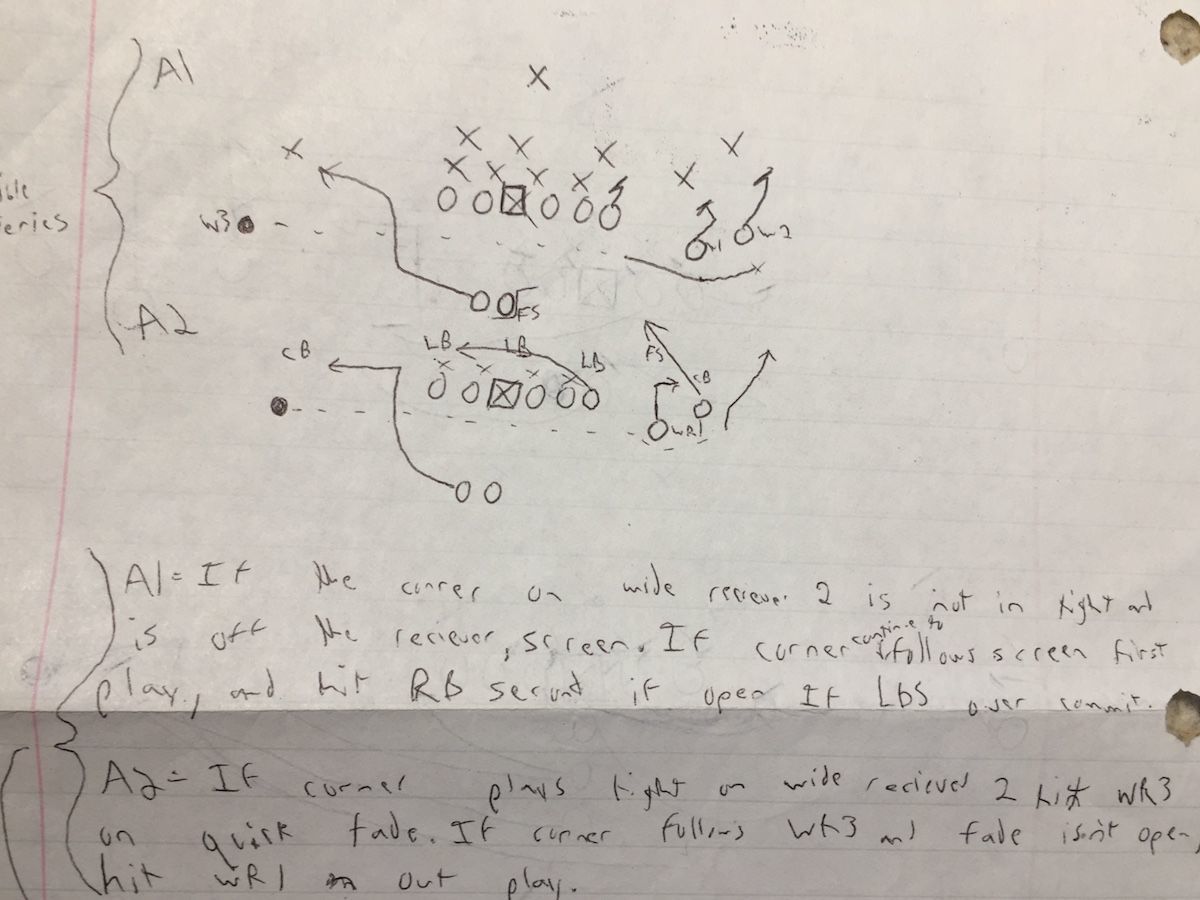 A1
W3
W1
W2
FS
A2
CB
LB
LB
LB
FS
CB
WR1
A1 = If the corner on wide reciever 2 is not in tight and
is off the reciever, screen. If corner continue to follows screen first
play, and hit RB second if open If Lbs over commit.
A2 = If corner plays tight on wide reciever 2 hit WR3
on quick fade. If corner follows WR3 and fade isn't open,
hit WR1 on out play.